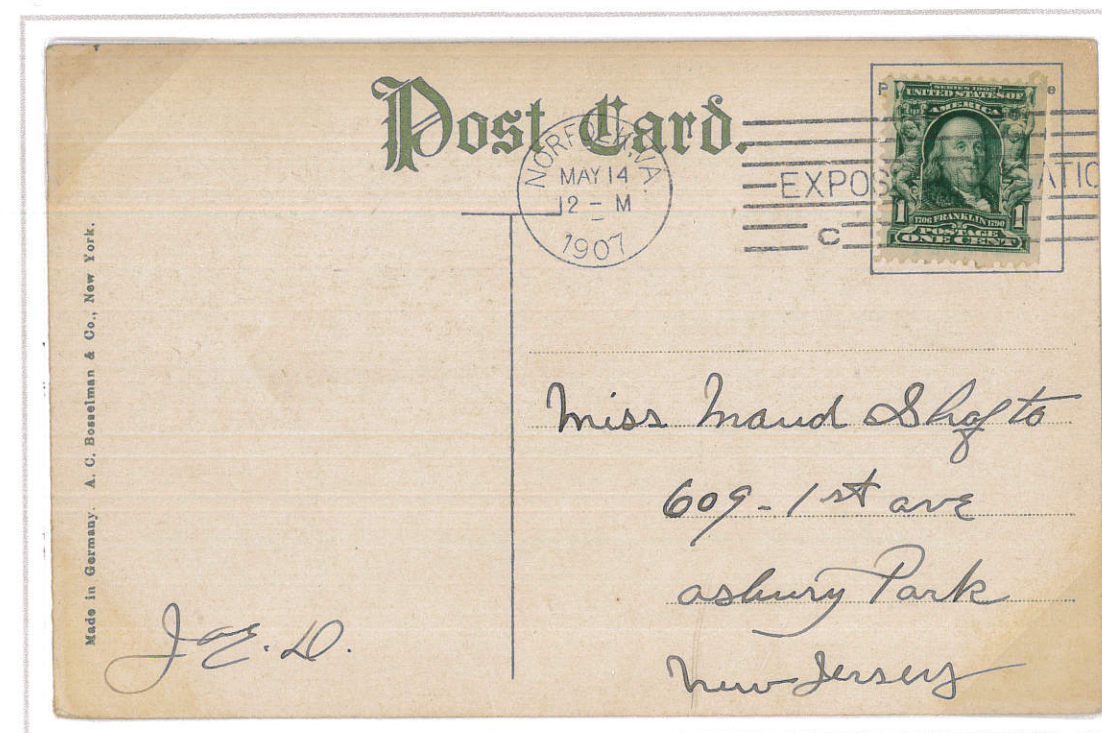 Post Card.
NORFOLK, VA.
MAY 14
12 - M
1907
EXPOS
C
SERIES 1902
UNITED STATES OF
AMERICA
1 1
1706 FRANKLIN 1790
POSTAGE
ONE CENT
Made in Germany. A. C. Bosselman & Co., New York.
Miss Maud Shafto
609 - 1st ave
asbury Park
New Jersey
D.